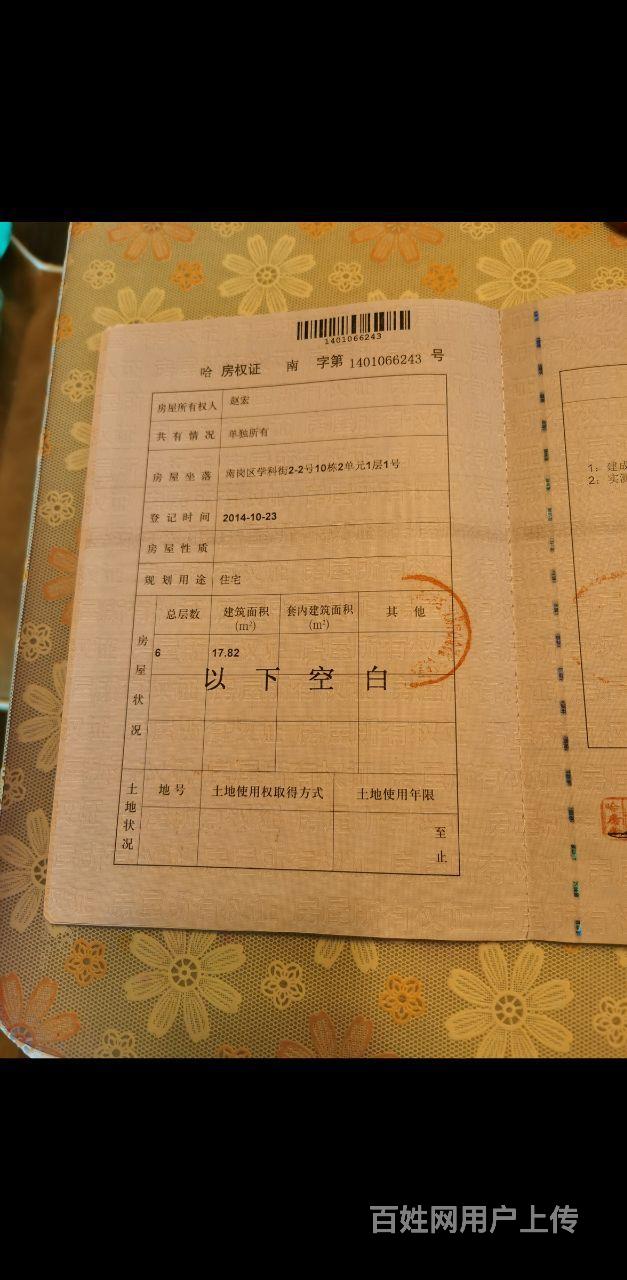 1401066243
哈 房权证 南 字第 1401066243 号
房屋所有权人 赵宏
共有情况 单独所有
房屋坐落 南岗区学科街2-2号10栋2单元1层1号
登记时间 2014-10-23
房屋性质
规划用途 住宅
房屋状况 总层数 建筑面积(m²) 套内建筑面积(m²) 其他
6 17.82
以下空白
土地状况 地号 土地使用权取得方式 土地使用年限
至
止
1：建成
2：实测
百姓网用户上传